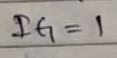 IG = 1